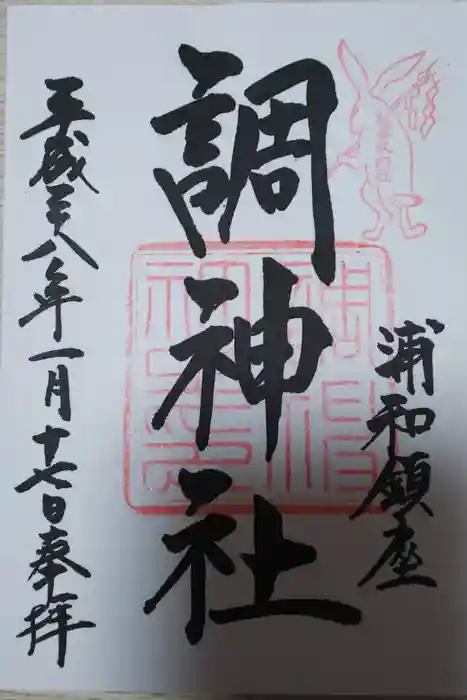 浦和鎮座
調神社
平成二十八年一月十七日奉拝